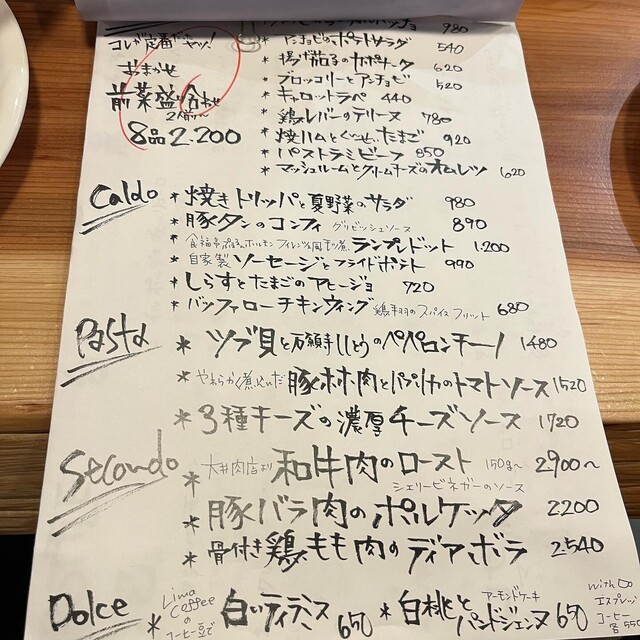 コレが定番だヤツ!
おまかせ
前菜盛合わせ
2人前〜
8品 2.200
980
* アンチョビのポテトサラダ 540
* 揚げ茄子のカポナータ 620
* ブロッコリーとアンチョビ 520
* キャロットラペ 440
* 鶏レバーのテリーヌ 780
* 焼ハムとくんせいたまご 920
* パストラミビーフ 850
* マッシュルームとクリームチーズのオムレツ 620
Caldo
* 焼きトリッパと夏野菜のサラダ 980
* 豚タンのコンフィ グリビッシュソース 890
* ランプレドット 1.200
* 自家製 ソーセージとフライドポテト 990
* しらすとたまごのアヒージョ 720
* バッファローチキンウィング 鶏手羽のスパイスフリット 680
Pasta
* ツブ貝と万願寺ししとうのペペロンチーノ 1480
* やわらかく煮込んだ 豚ホホ肉とパプリカのトマトソース 1520
* 3種チーズの濃厚チーズソース 1720
Secondo
* 大井肉店より 和牛肉のロースト 150g〜 2900〜
シェリービネガーのソース
* 豚バラ肉のポルケッタ 2200
* 骨付き鶏もも肉のディアボラ 2540
Dolce
* Lima Coffeeのコーヒー豆で 白いティラミス 650
* 白桃とアーモンドケーキ パンドジェンヌ 650
with Do
エスプレッソ
コーヒー
各550